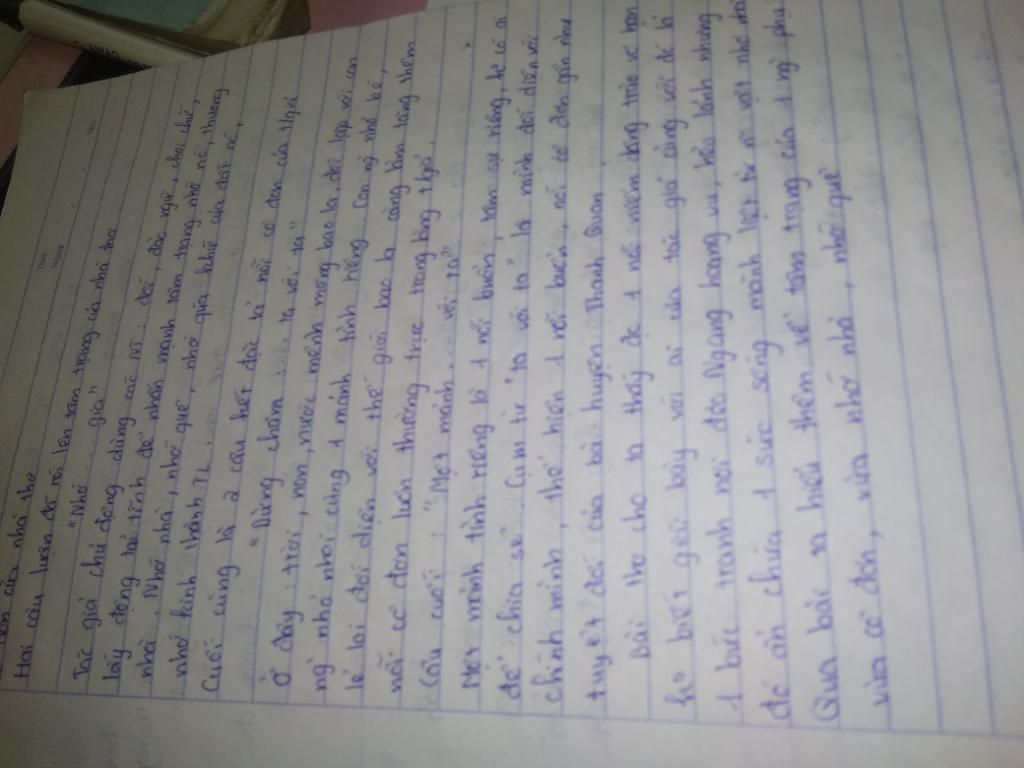 của nhà thơ
Hai câu luận đã rọi lên tâm trạng của nhà thơ
"Nhớ ..... gia"
Tác giả chủ động dùng các : đối, đảo ngữ, chơi chữ,
lấy động tả tĩnh để nhấn mạnh tâm trạng nhớ nc, thương
nhà. Nhớ nhà, nhớ quê, nhớ quá khứ của đất nc,
nhớ kinh thành TL
Cuối cùng là 2 câu kết đặc tả nỗi cô đơn của t/giả
"Dừng chân ..... ta với ta"
Ở đây: trời, non, nước mênh mông bao la, đối lập với con
ng nhỏ nhoi cùng 1 mảnh tình riêng. Con ng nhỏ bé,
lẻ loi đối diện với thế giới bao la càng làm tăng thêm
nỗi cô đơn luôn thường trực trong lòng t/giả.
Câu cuối: "Một mảnh... với ta"
Một mảnh tình riêng là 1 nỗi buồn, tâm sự riêng, ko có ai
để chia sẻ. Cụm từ "ta với ta" là mình đối diện với
chính mình, thể hiện 1 nỗi buồn, nỗi cô đơn gần như
tuyệt đối của bà huyện Thanh Quan.
Bài thơ cho ta thấy đc 1 nỗi niềm dâng trào về hoàn
ko biết giãi bày với ai của tác giả cùng với đó là
1 bức tranh nơi đèo Ngang hoang vu, hẻo lánh nhưng
đó ẩn chứa 1 sức sống mãnh liệt từ n~ vật nhỏ nhoi
Qua bài, hiểu thêm về tâm trạng của 1 ng phụ
vừa cô đơn, vừa nhớ nhà, nhớ quê